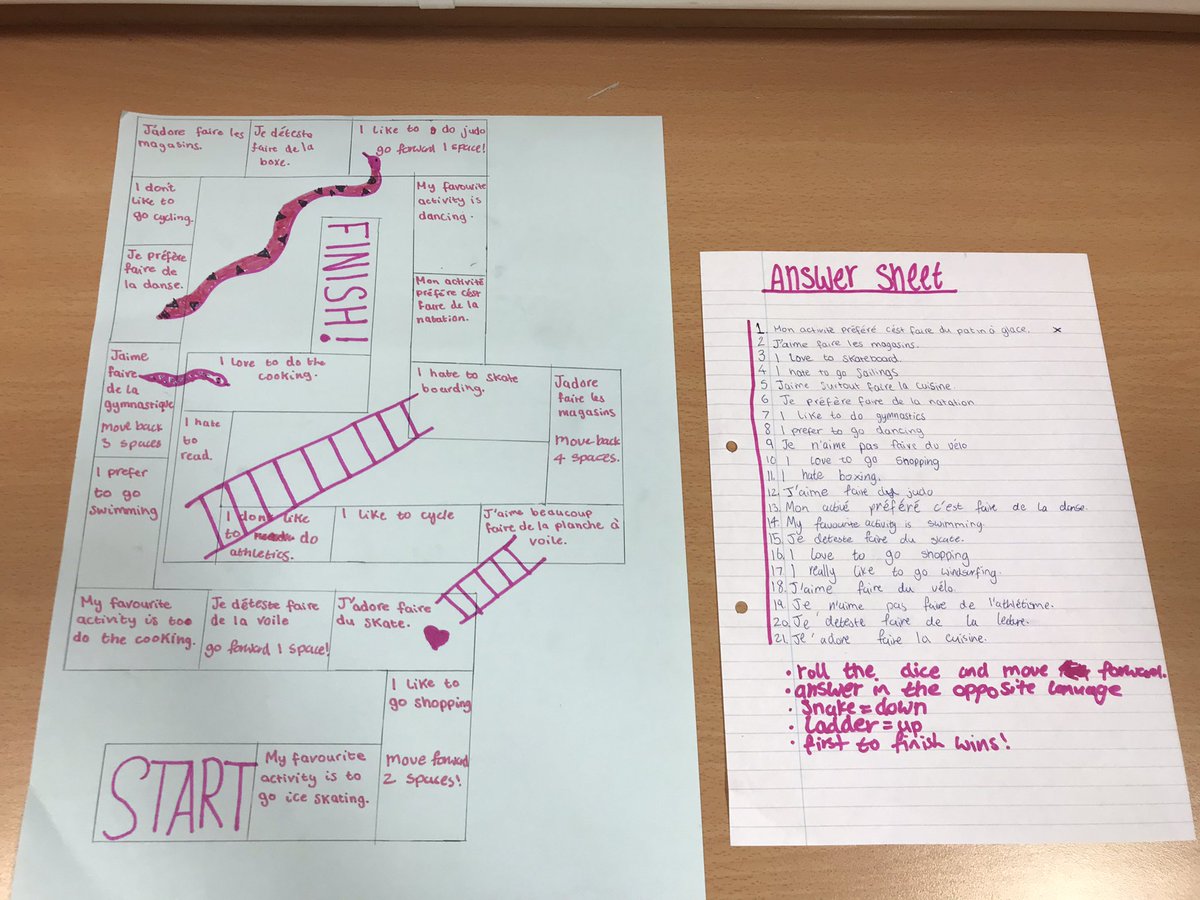 J'adore faire les
magasins.
Je déteste
faire de la
boxe.
I like to do judo
go forward 1 space!
I don't
like to
go cycling.
My favourite
activity is
dancing.
FINISH!
Je préfère
faire de
la danse.
Mon activité
préféré c'ést
faire de la
natation.
J'aime
faire
de la
gymnastique
move back
3 spaces
I love to do the
cooking.
I hate to skate
boarding.
J'adore
faire les
magasins
move back
4 spaces.
I hate
to
read.
I prefer
to go
swimming
I don't like
to do
athletics.
I like to cycle
J'aime beaucoup
faire de la planche à
voile.
My favourite
activity is too
do the cooking.
Je déteste faire
de la voile
go forward 1 space!
J'adore faire
du skate.
I like to
go shopping
move forward
2 spaces!
START
My favourite
activity is to
go ice skating.
Answer Sheet
1. Mon activité préféré c'ést faire du patin à glace. x
2 J'aime faire les magasins.
3 I love to skateboard.
4 I hate to go Sailings
5 J'aime surtout faire la cuisine.
6 Je préfère faire de la natation
7 I like to do gymnastics
8 I prefer to go dancing
9 Je n'aime pas faire du vélo
10 I love to go shopping
11. I hate boxing.
12. J'aime faire du judo
13. Mon activé préféré c'est faire de la danse.
14. My favourite activity is swimming.
15. Je deteste faire du skate.
16. I love to go shopping
17. I really like to go windsurfing.
18. J'aime faire du vélo.
19. Je n'aime pas faire de l'athlétisme.
20. Je déteste faire de la lecture.
21. Je'adore faire la cuisine.
• roll the dice and move forward.
• answer in the opposite language
• Snake = down
• Ladder = up
• first to finish wins!